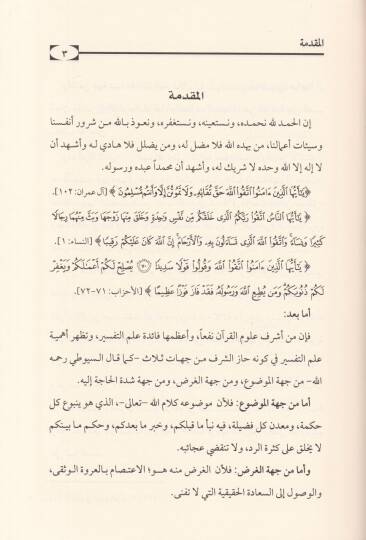 المقدمة
٣
المقدمة
إن الحمد لله نحمده، ونستعينه، ونستغفره، ونعوذ بالله من شرور أنفسنا
وسيئات أعمالنا، من يهده الله فلا مضل له، ومن يضلل فلا هادي له وأشهد أن
لا إله إلا الله وحده لا شريك له، وأشهد أن محمداً عبده ورسوله.
﴿يَـٰٓأَيُّهَا ٱلَّذِينَ ءَامَنُوا۟ ٱتَّقُوا۟ ٱللَّهَ حَقَّ تُقَاتِهِۦ وَلَا تَمُوتُنَّ إِلَّا وَأَنتُم مُّسْلِمُونَ﴾ [آل عمران: ١٠٢].
﴿يَـٰٓأَيُّهَا ٱلنَّاسُ ٱتَّقُوا۟ رَبَّكُمُ ٱلَّذِى خَلَقَكُم مِّن نَّفْسٍ وَٰحِدَةٍ وَخَلَقَ مِنْهَا زَوْجَهَا وَبَثَّ مِنْهُمَا رِجَالًا
كَثِيرًا وَنِسَآءً ۚ وَٱتَّقُوا۟ ٱللَّهَ ٱلَّذِى تَسَآءَلُونَ بِهِۦ وَٱلْأَرْحَامَ ۚ إِنَّ ٱللَّهَ كَانَ عَلَيْكُمْ رَقِيبًا﴾ [النساء: ١].
﴿يَـٰٓأَيُّهَا ٱلَّذِينَ ءَامَنُوا۟ ٱتَّقُوا۟ ٱللَّهَ وَقُولُوا۟ قَوْلًا سَدِيدًا ۝٧٠ يُصْلِحْ لَكُمْ أَعْمَـٰلَكُمْ وَيَغْفِرْ
لَكُمْ ذُنُوبَكُمْ ۗ وَمَن يُطِعِ ٱللَّهَ وَرَسُولَهُۥ فَقَدْ فَازَ فَوْزًا عَظِيمًا﴾ [الأحزاب: ٧١-٧٢].
أما بعد:
فإن من أشرف علوم القرآن نفعاً، وأعظمها فائدة علم التفسير، وتظهر أهمية
علم التفسير في كونه حاز الشرف من جهات ثلاث -كما قال السيوطي رحمه
الله- من جهة الموضوع، ومن جهة الغرض، ومن جهة شدة الحاجة إليه.
أما من جهة الموضوع: فلأن موضوعه كلام الله -تعالى-، الذي هو ينبوع كل
حكمة، ومعدن كل فضيلة، فيه نبأ ما قبلكم، وخبر ما بعدكم، وحكم ما بينكم
لا يخلق على كثرة الرد، ولا تنقضي عجائبه.
وأما من جهة الغرض: فلأن الغرض منه هو؛ الاعتصام بالعروة الوثقى،
والوصول إلى السعادة الحقيقية التي لا تفنى.